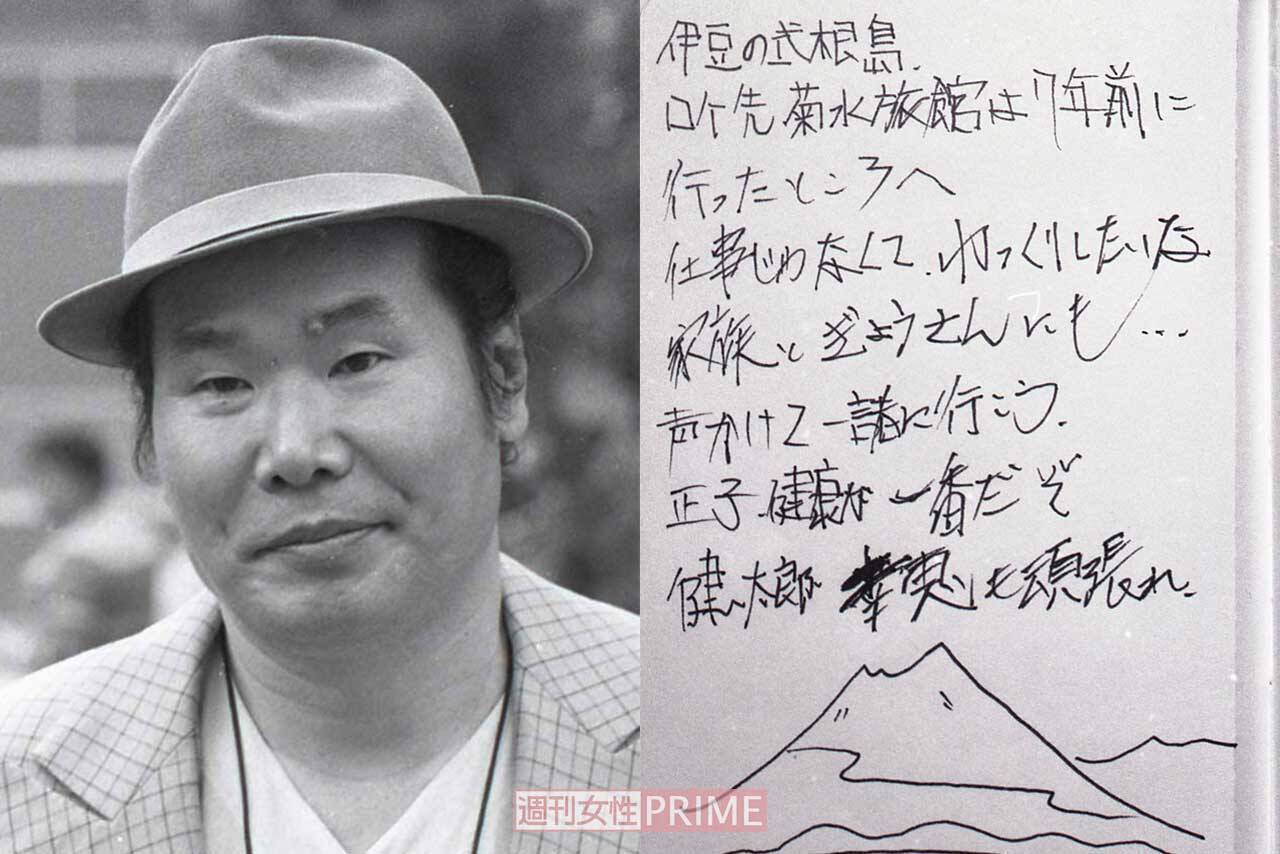 伊豆の式根島.
ロケ先 菊水旅館は7年前に
行ったところへ
仕事じゃなくて、ゆっくりしたいな
家族と ぎょうさんにも…
声かけて一諸に行こう.
正子 健康が一番だぞ
健太郎 実も頑張れ.
週刊女性PRIME